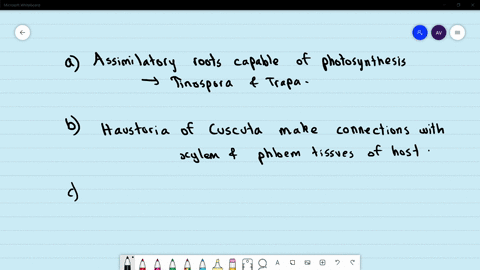 Microsoft Whiteboard
AV
a) Assimilatory roots capable of photosynthesis
→ Tinospora & Trapa.
b) Haustoria of Cuscuta make connections with
xylem & phloem tissues of host.
c)